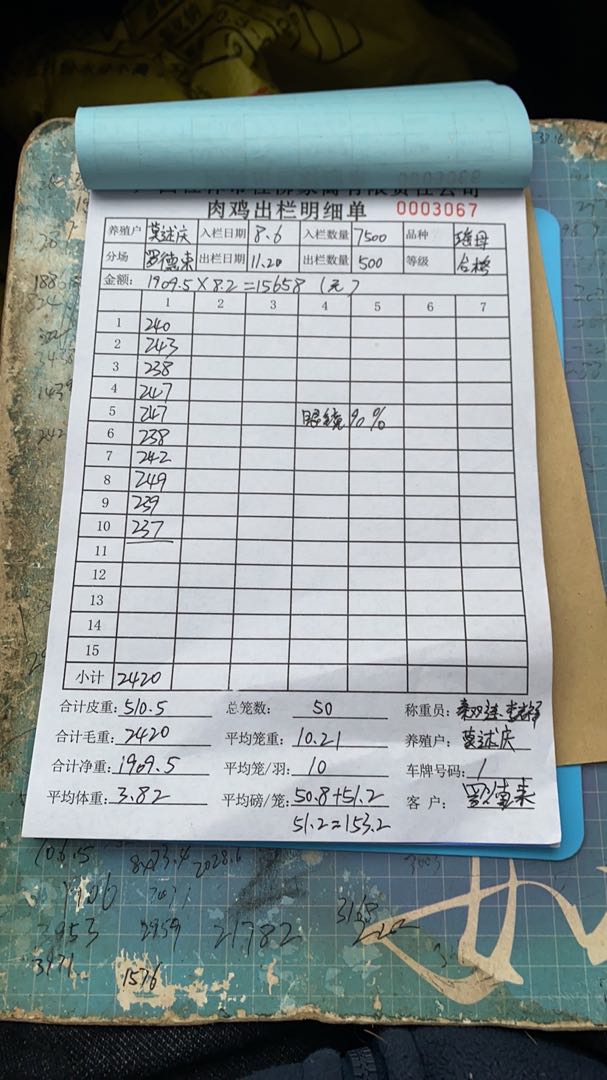 肉鸡出栏明细单 0003067
养殖户 莫述庆 入栏日期 8.6 入栏数量 7500 品种 瑶母
分场 罗德来 出栏日期 11.20 出栏数量 500 等级 合格
金额: 1909.5×8.2=15658 (元)
1 2 3 4 5 6 7
1 240
2 243
3 238
4 247
5 247 眼镜90%
6 238
7 242
8 249
9 239
10 237
11
12
13
14
15
小计 2420
合计皮重: 510.5 总笼数: 50 称重员:
合计毛重: 2420 平均笼重: 10.21 养殖户: 莫述庆
合计净重: 1909.5 平均笼/羽: 10 车牌号码: 1
平均体重: 3.82 平均磅/笼: 50.8+51.2 客户: 罗德来
51.2=153.2
106.5 8×73.4 2028.6
2953 2959 21782 3168
3971 1576